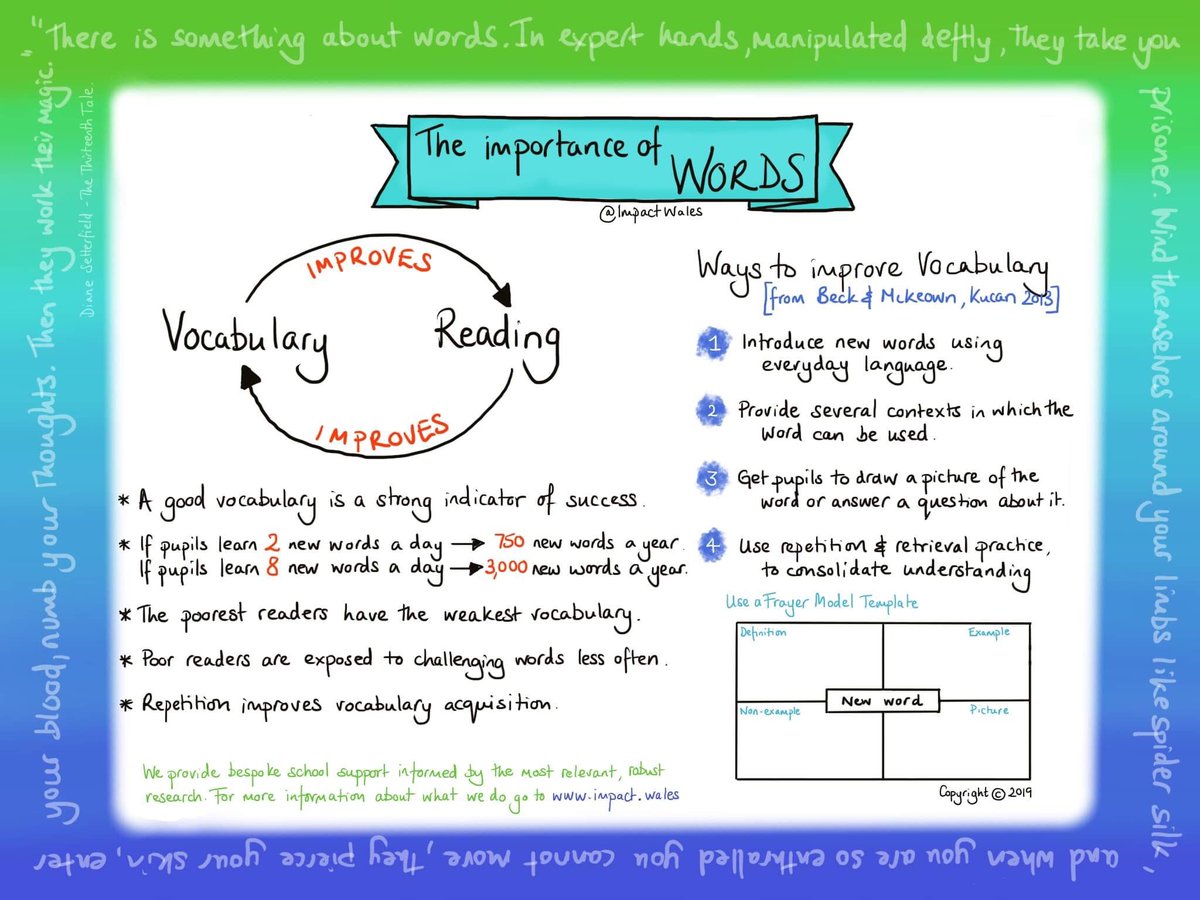 "There is something about words. In expert hands, manipulated deftly, they take you
prisoner. Wind themselves around your limbs like spider silk,
and when you are so enthralled you cannot move, they pierce your skin, enter
your blood, numb your thoughts. Then they work their magic."
Diane Setterfield - The Thirteenth Tale.
The importance of WORDS
@ImpactWales
IMPROVES
Vocabulary
Reading
IMPROVES
* A good vocabulary is a strong indicator of success.
* If pupils learn 2 new words a day → 750 new words a year.
If pupils learn 8 new words a day → 3,000 new words a year.
* The poorest readers have the weakest vocabulary.
* Poor readers are exposed to challenging words less often.
* Repetition improves vocabulary acquisition.
We provide bespoke school support informed by the most relevant, robust
research. For more information about what we do go to www.impact.wales
Ways to improve Vocabulary
[from Beck & McKeown, Kucan 2013]
1 Introduce new words using
everyday language.
2 Provide several contexts in which the
word can be used.
3 Get pupils to draw a picture of the
word or answer a question about it.
4 Use repetition & retrieval practice,
to consolidate understanding
Use a Frayer Model Template
Definition
Example
New word
Non-example
Picture
Copyright © 2019